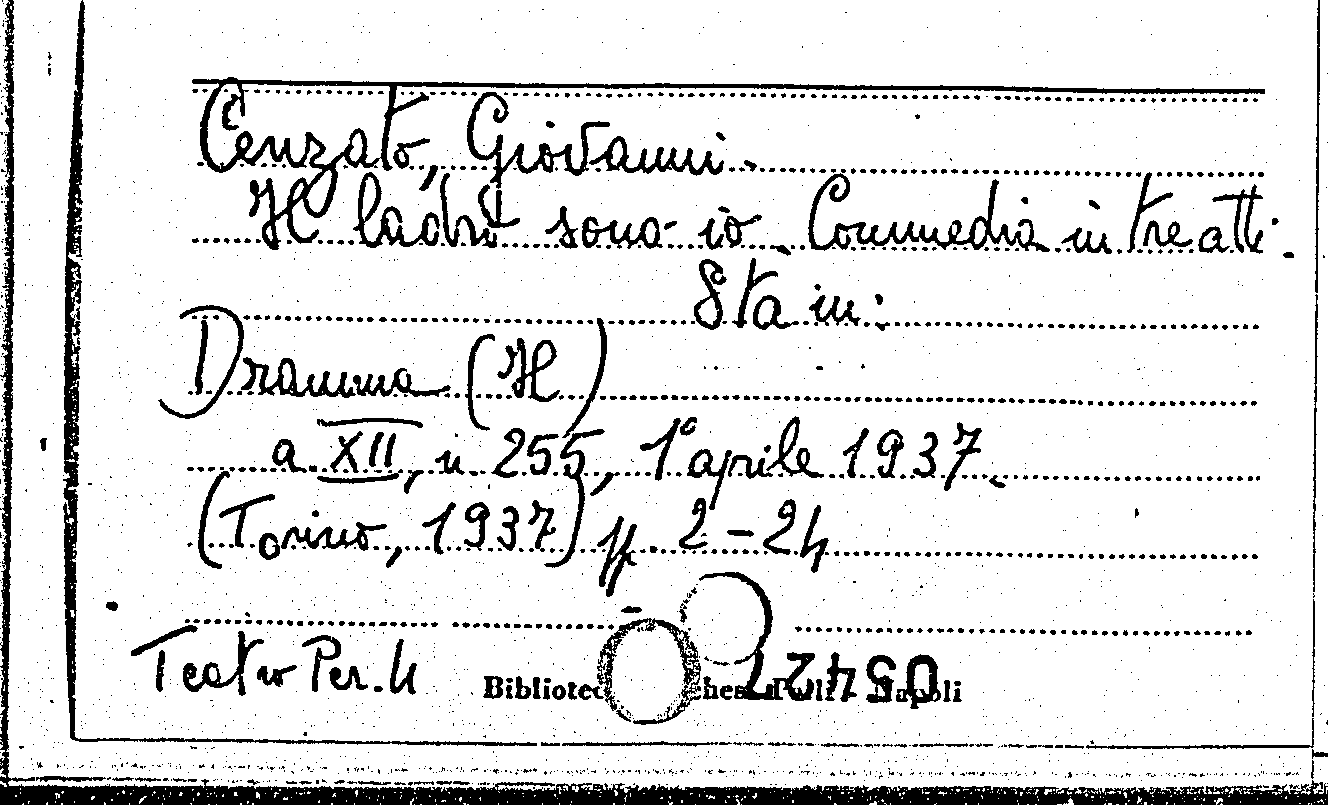 Cenzato, Giovanni.
Il ladro sono io. Commedia in tre atti.
Sta in:
Dramma (Il)
a. XII, n. 255, 1° aprile 1937.
(Torino, 1937) pp. 2-24
Teatro Per. 4
05427